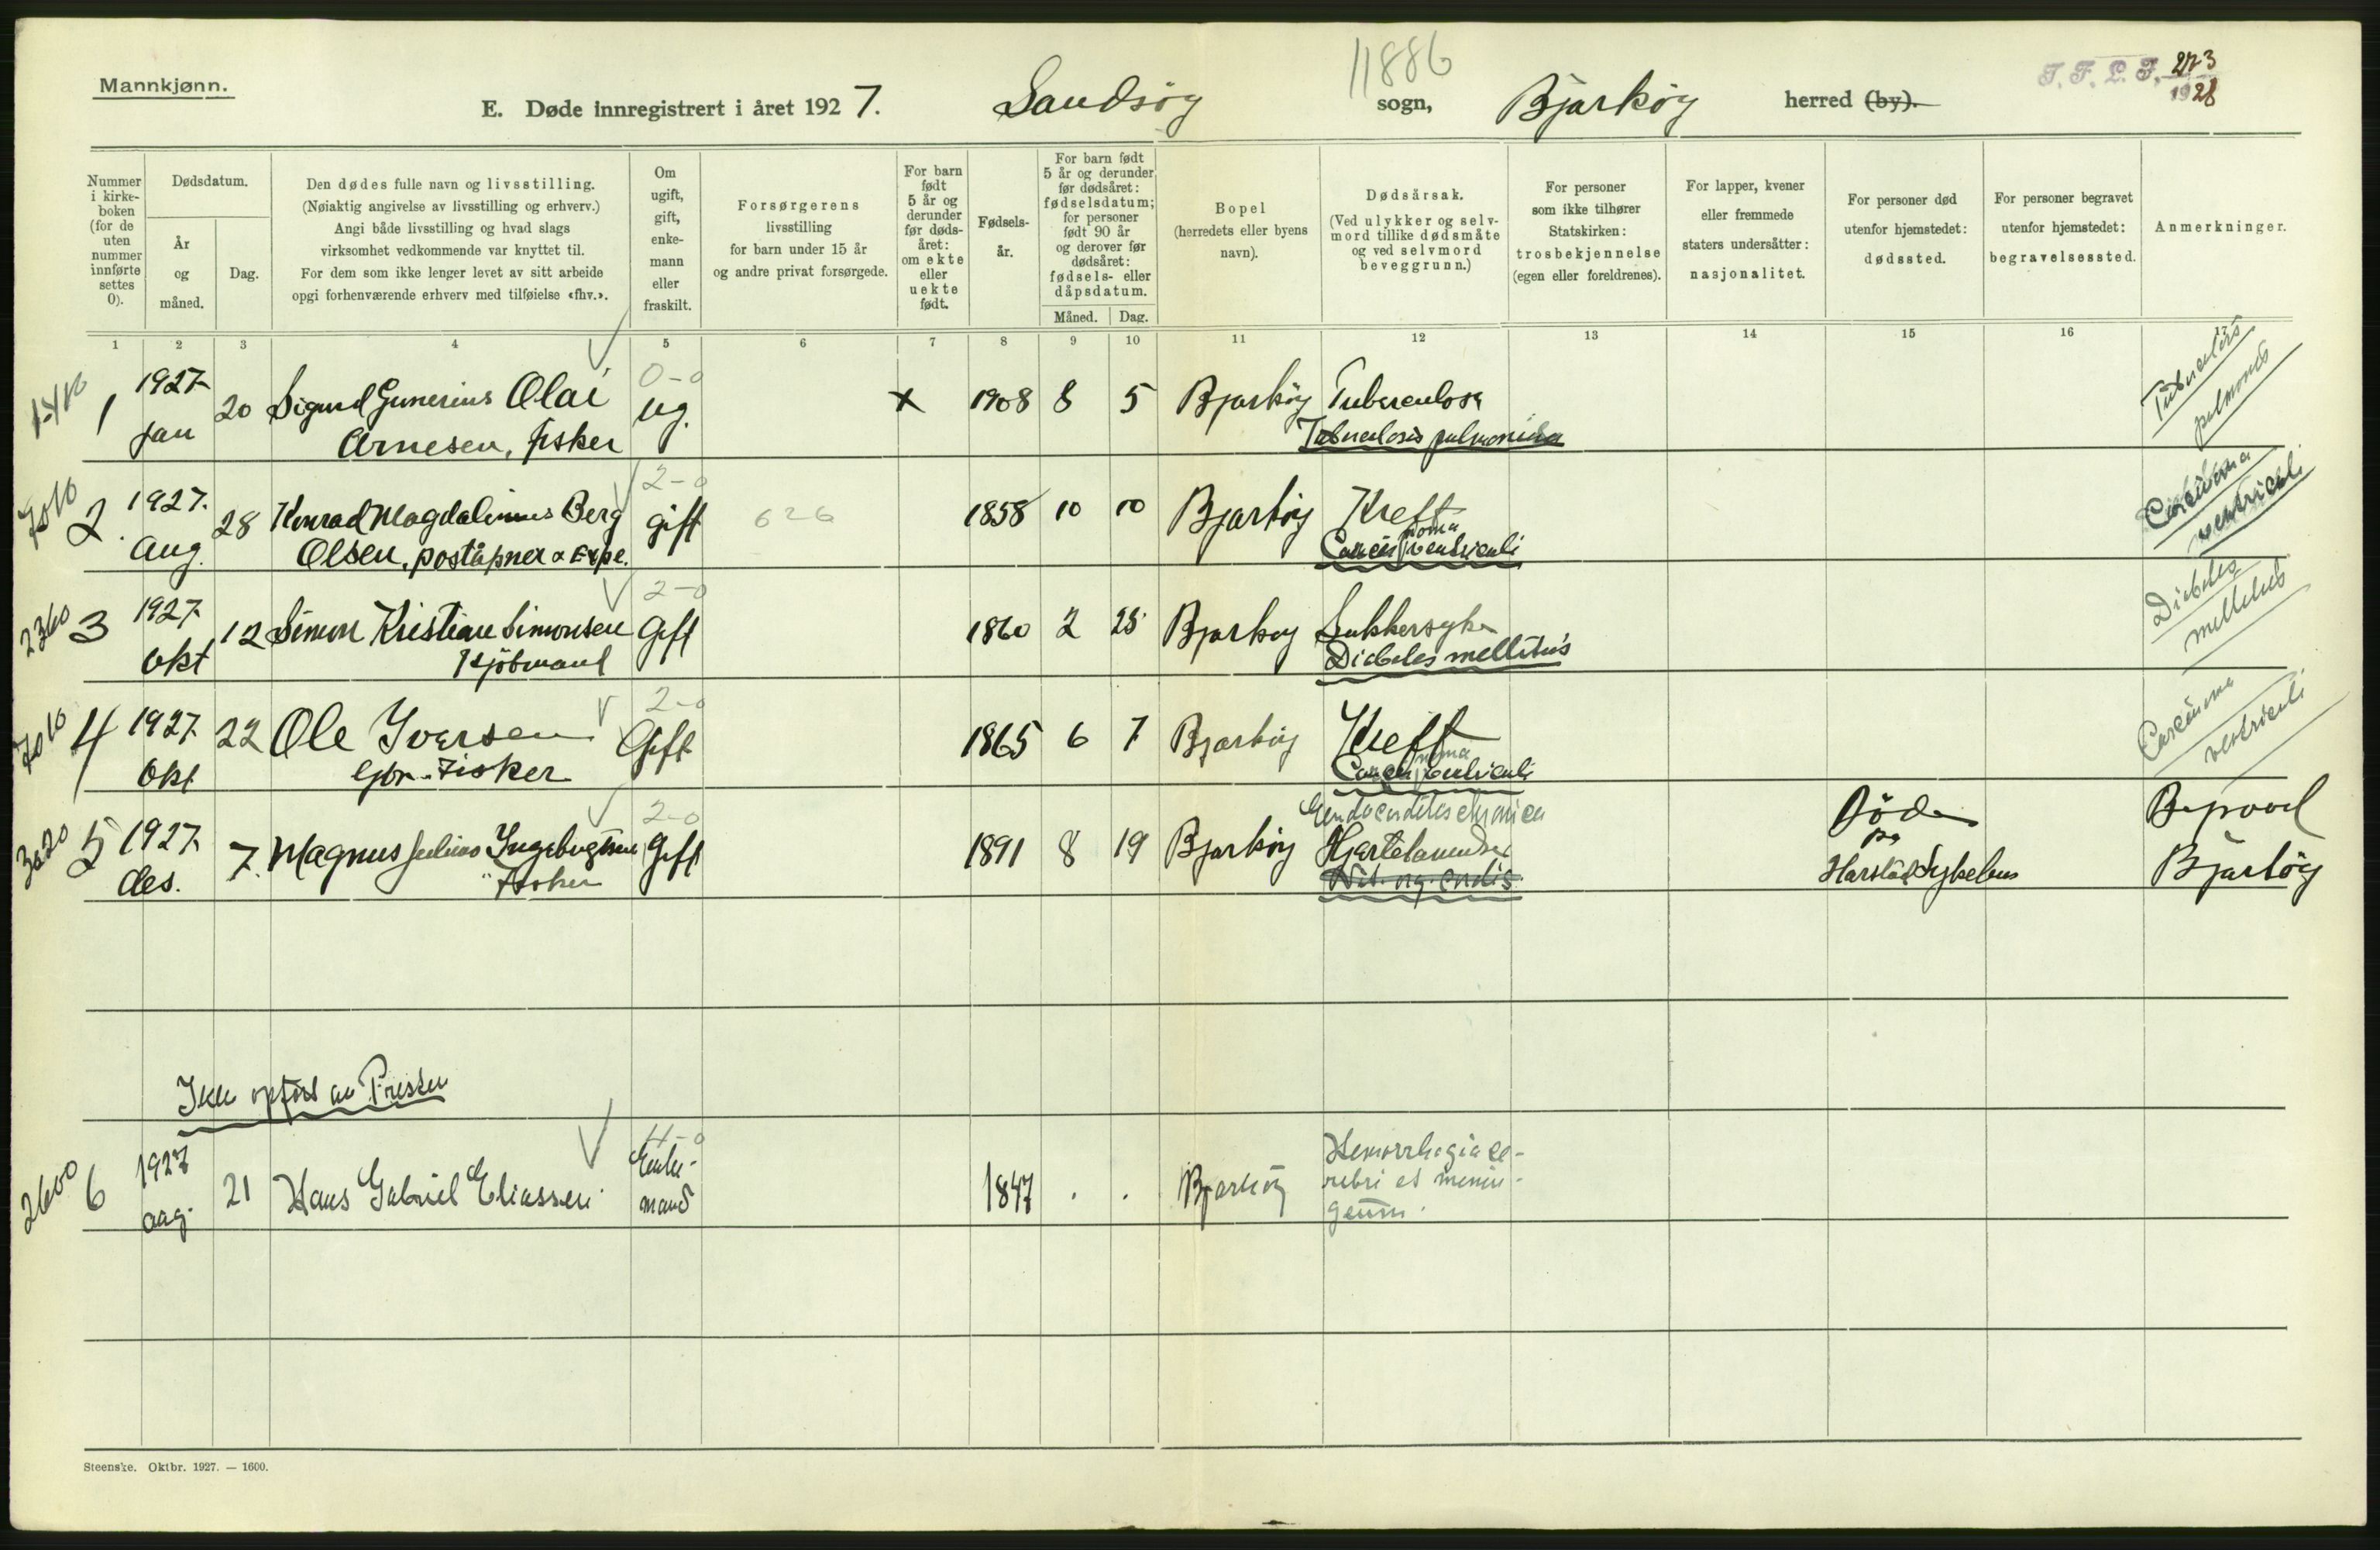 11886
T. F. L. F. 273
1928
Mannkjønn.
E. Døde innregistrert i året 1927. Sandsøy sogn, Bjarkøy herred (by).
Nummer
i kirke-
boken
(for de
uten
nummer
innførte
settes
0).
Dødsdatum.
År
og
måned.
Dag.
Den dødes fulle navn og livsstilling.
(Nøiaktig angivelse av livsstilling og erhverv.)
Angi både livsstilling og hvad slags
virksomhet vedkommende var knyttet til.
For dem som ikke lenger levet av sitt arbeide
opgi forhenværende erhverv med tilføielse «fhv.».
Om
ugift,
gift,
enke-
mann
eller
fraskilt.
Forsørgerens
livsstilling
for barn under 15 år
og andre privat forsørgede.
For barn
født
5 år og
derunder
før døds-
året:
om ekte
eller
uekte
født.
Fødsels-
år.
For barn født
5 år og derunder
før dødsåret:
fødselsdatum;
for personer
født 90 år
og derover før
dødsåret:
fødsels- eller
dåpsdatum.
Måned. Dag.
Bopel
(herredets eller byens
navn).
Dødsårsak.
(Ved ulykker og selv-
mord tillike dødsmåte
og ved selvmord
beveggrunn.)
For personer
som ikke tilhører
Statskirken:
trosbekjennelse
(egen eller foreldrenes).
For lapper, kvener
eller fremmede
staters undersåtter:
nasjonalitet.
For personer død
utenfor hjemstedet:
dødssted.
For personer begravet
utenfor hjemstedet:
begravelsessted.
Anmerkninger.
1 2 3 4 5 6 7 8 9 10 11 12 13 14 15 16 17
1927 0-0 Tuberculosis
1 20 Sigurd Gunerius Olai ug. x 1908 8 5 Bjarkøy Tuberculose pulmonis
jan Arnesen, fisker Tuberculosis pulmonum
7010 1927. 2-0 Carcinoma
2. 28 Konrad Magdalinius Berg gift 626 1858 10 10 Bjarkøy Kreft ventriculi
aug. Olsen, poståpner & Expe. Carcinoma ventriculi
2360 1927. 2-0 Diabetes
3 12 Simon Kristian Simonsen Gift 1860 2 25 Bjarkøy Sukkersyke mellitus
okt Kjöbmand Diabetes mellitus
7010 2-0 Carcinoma
4 1927. 22 Ole Iversen Gift 1865 6 7 Bjarkøy Kreft ventriculi
Okt gbr. fisker Carcinoma ventriculi
3020 2-0 Endocarditis chronica
5 1927. 7. Magnus Julius Ingebrigtsen Gift 1891 8 19 Bjarkøy Hjertelammelse Döde
des. Fisker Vit. org. cordis på
Harstad Sykehus Bjarkøy
Ikke opført av Presten
2600 1927 4-0 Hemorrhagia ce-
6 21 Hans Gabriel Eliassen Enke- 1847 . . Bjarkøy rebri et menin-
aug. mand geum.
Steenske. Oktbr. 1927. — 1600.